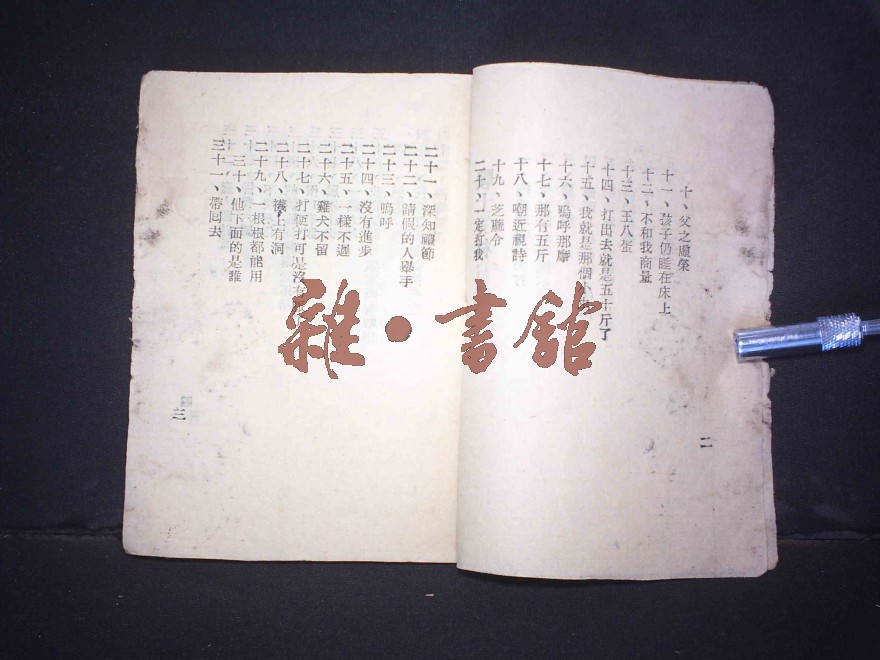 十、父之虛榮
十一、孩子仍睡在床上
十二、不和我商量
十三、王八蛋
十四、打出去就是五十斤了
十五、我就是那個
十六、嗚呼那摩
十七、那有五斤
十八、嘲近視詩
十九、芝麻令
二十、一定打我
二
二十一、深知禮節
二十二、請假的人舉手
二十三、嗚呼
二十四、沒有進步
二十五、一樣不遲
二十六、雞犬不留
二十七、打便打可是沒有
二十八、襪上有洞
二十九、一根根都能用
三十、他下面的是誰
三十一、帶回去
三
雜·書館